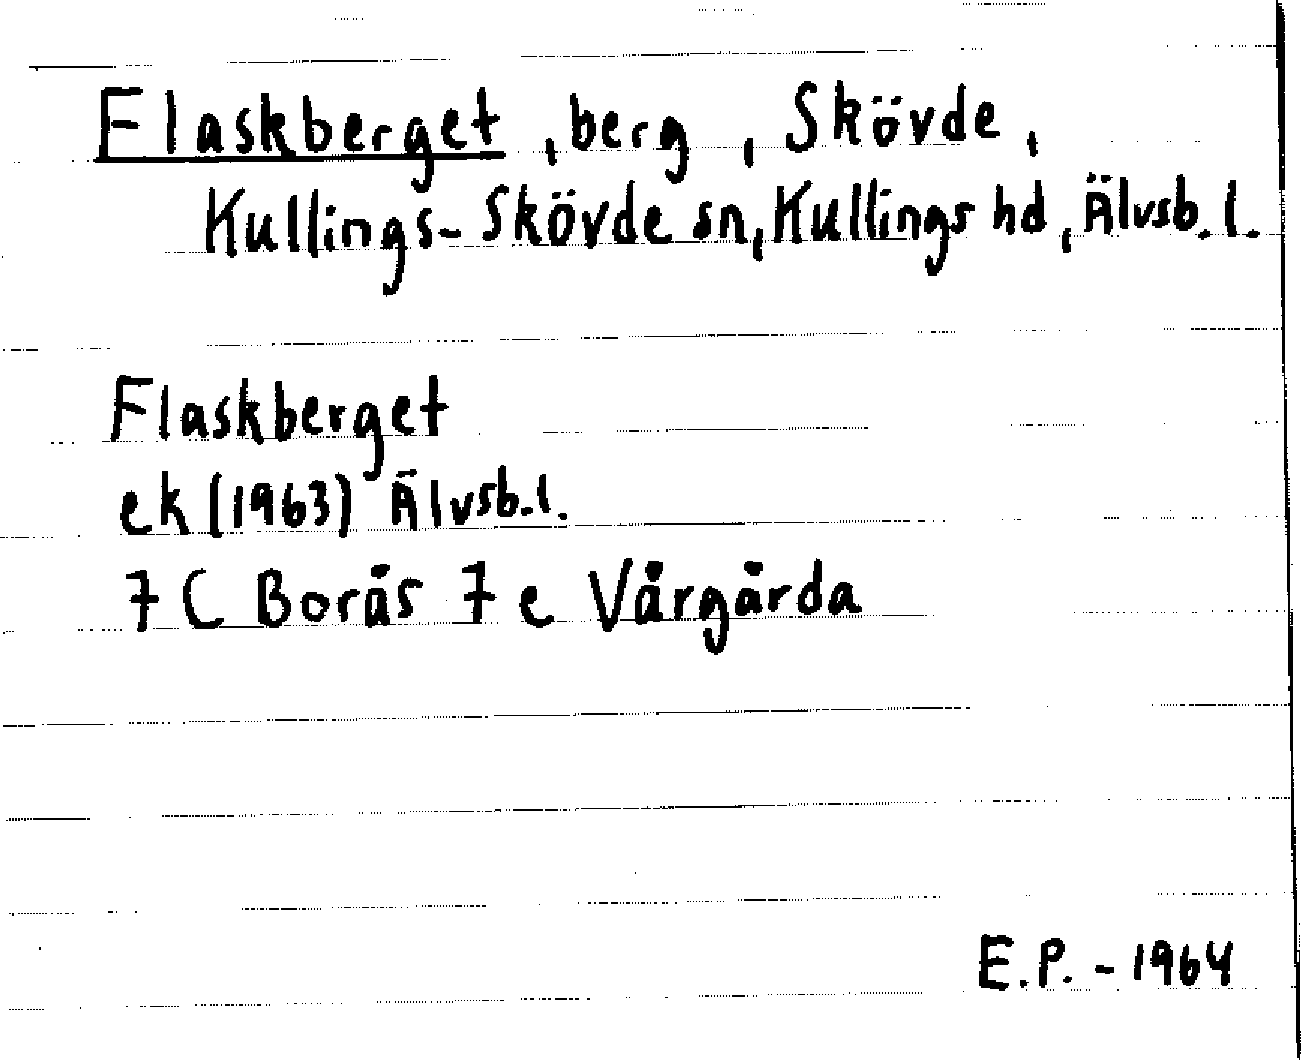 Flaskberget, berg, Skövde,
Kullings-Skövde sn, Kullings hd, Älvsb. l.
Flaskberget
ek (1963) Älvsb. l.
7 C Borås 7 e Vårgårda
E.P. - 1964